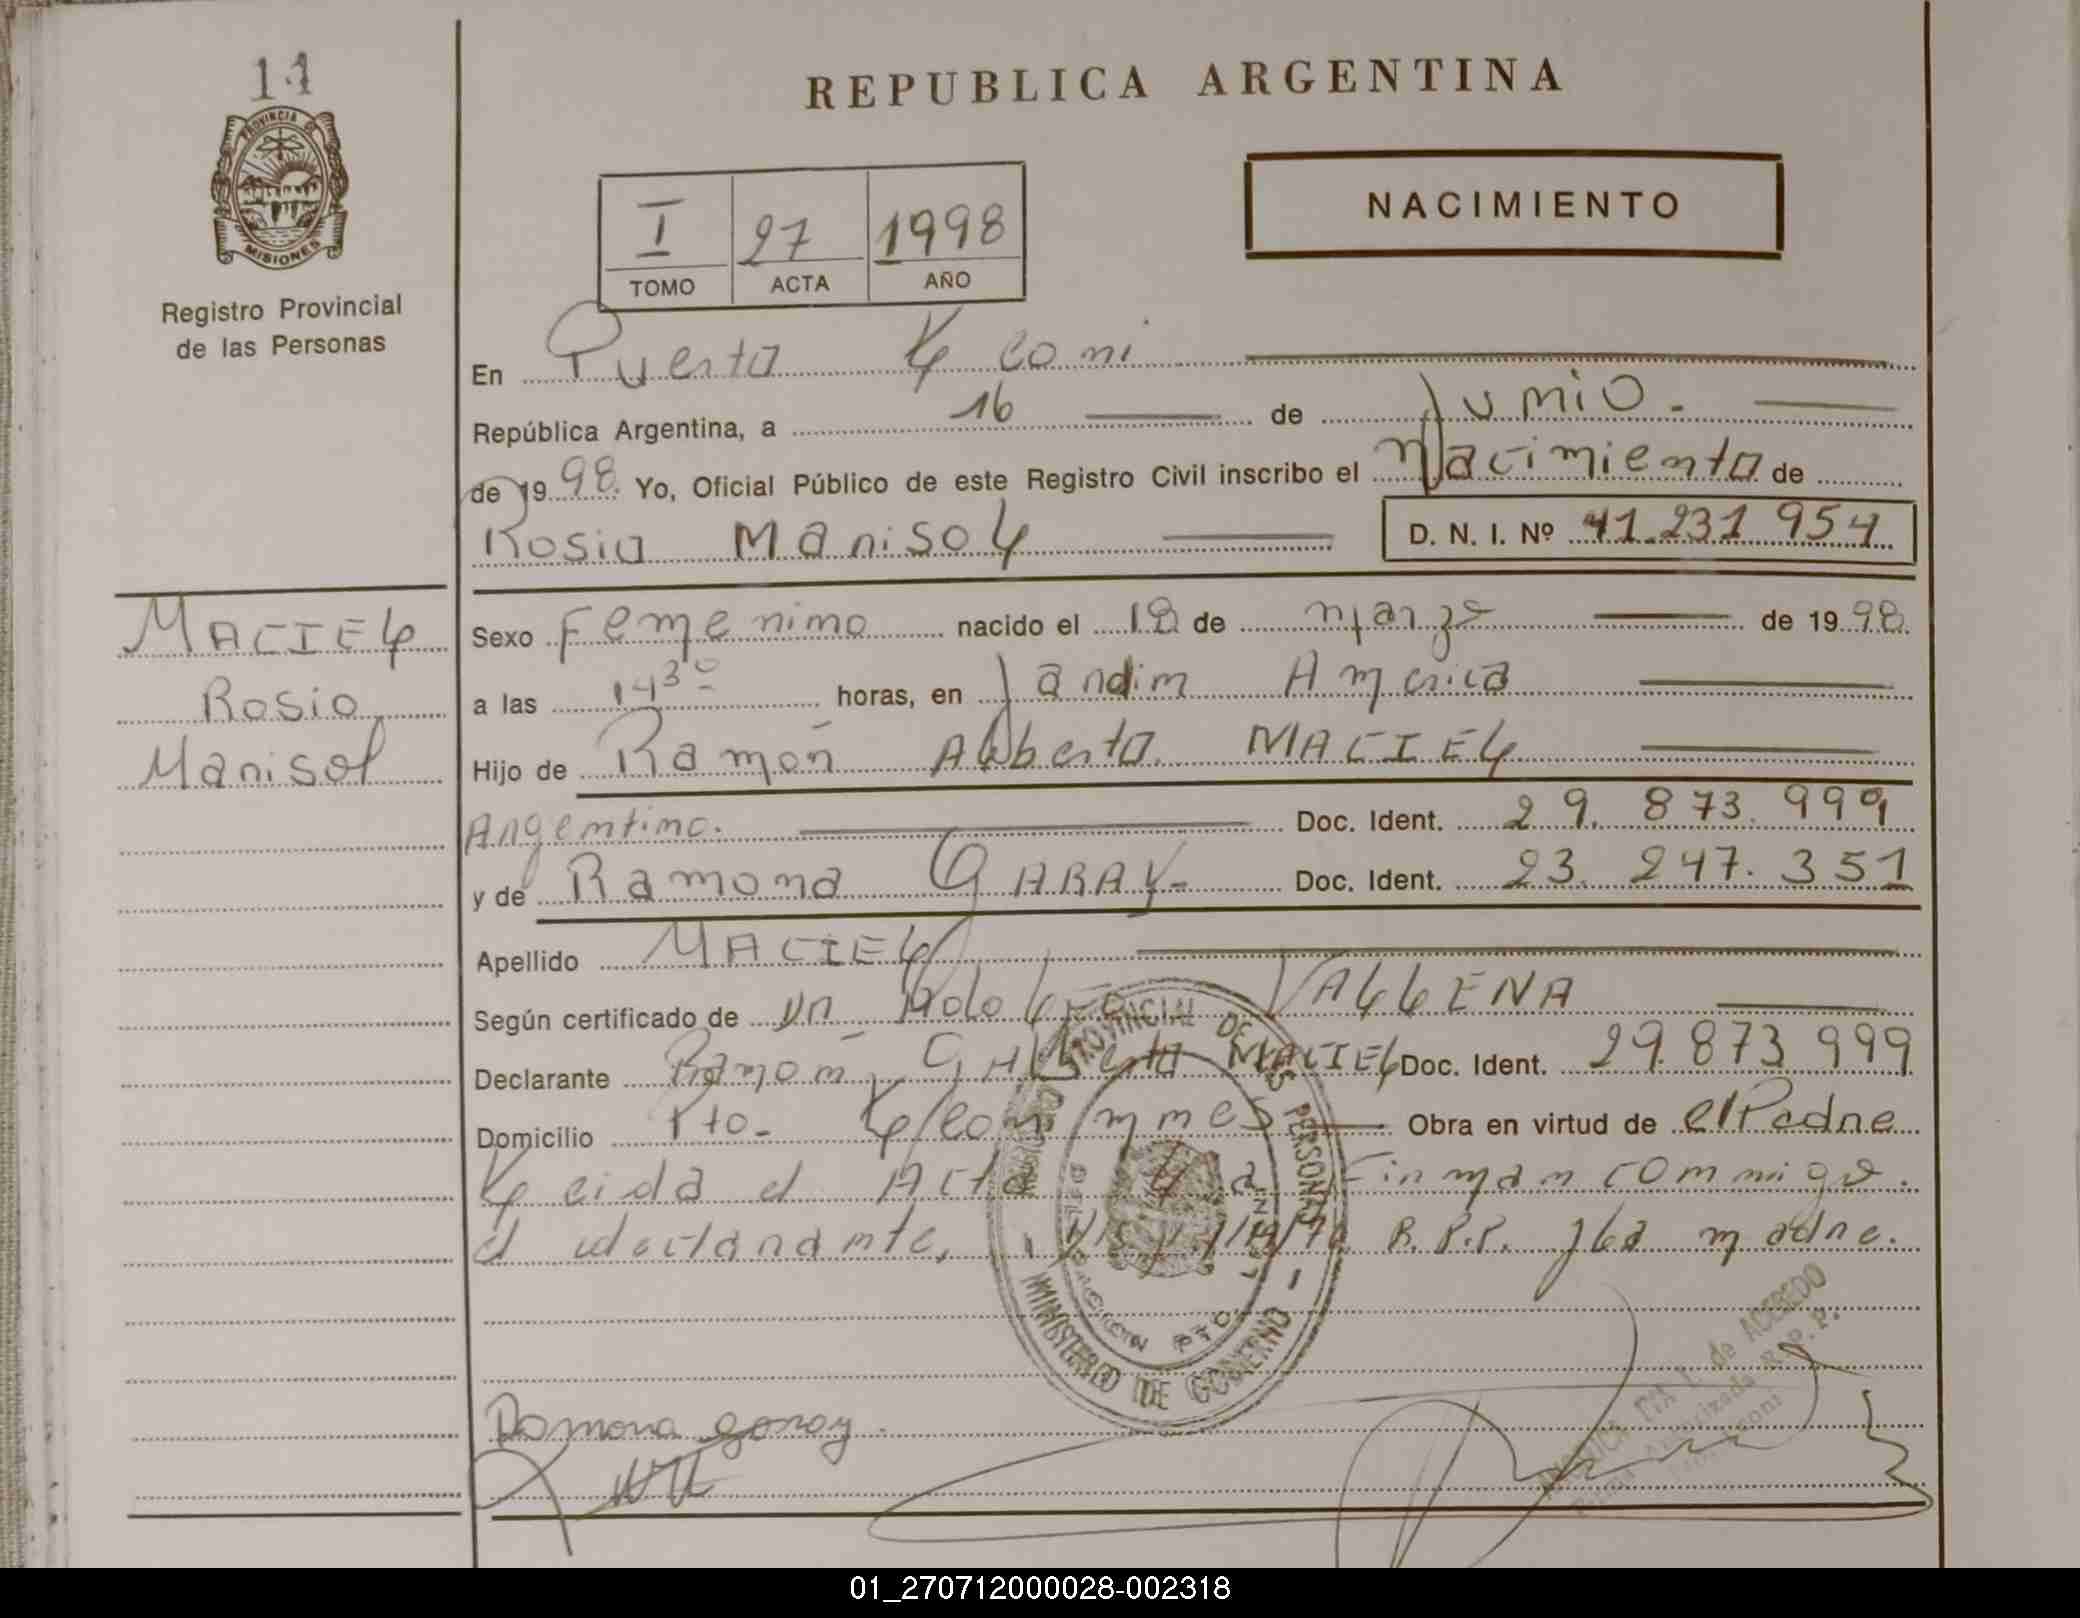 11
REPUBLICA ARGENTINA
PROVINCIA DE
MISIONES
NACIMIENTO
I 27 1998
TOMO ACTA AÑO
Registro Provincial
de las Personas
En Puerto Leoni
República Argentina, a 16 de Junio.
de 1998. Yo, Oficial Público de este Registro Civil inscribo el Nacimiento de
Rosio Marisol D. N. I. Nº 41.231.954
MACIEL
Rosio
Marisol
Sexo Femenino nacido el 18 de Marzo de 1998.
a las 14 30 horas, en Jardin America
Hijo de Ramón Alberto MACIEL
Argentino. Doc. Ident. 29. 873. 999
y de Ramona GARAY- Doc. Ident. 23. 247. 351
Apellido MACIEL
Según certificado de VALLENA
Declarante Ramón MACIEL Doc. Ident. 29.873 999
Domicilio Pto- Leoni Obra en virtud de el Padre
Leida el Acta Firman conmigo.
el declarante, R.P.P. y la madre.
PROVINCIAL DE LAS PERSONAS
MINISTERIO DE GOBIERNO
Ramona garay.
de ACEBEDO
R.P.P.
01_270712000028-002318